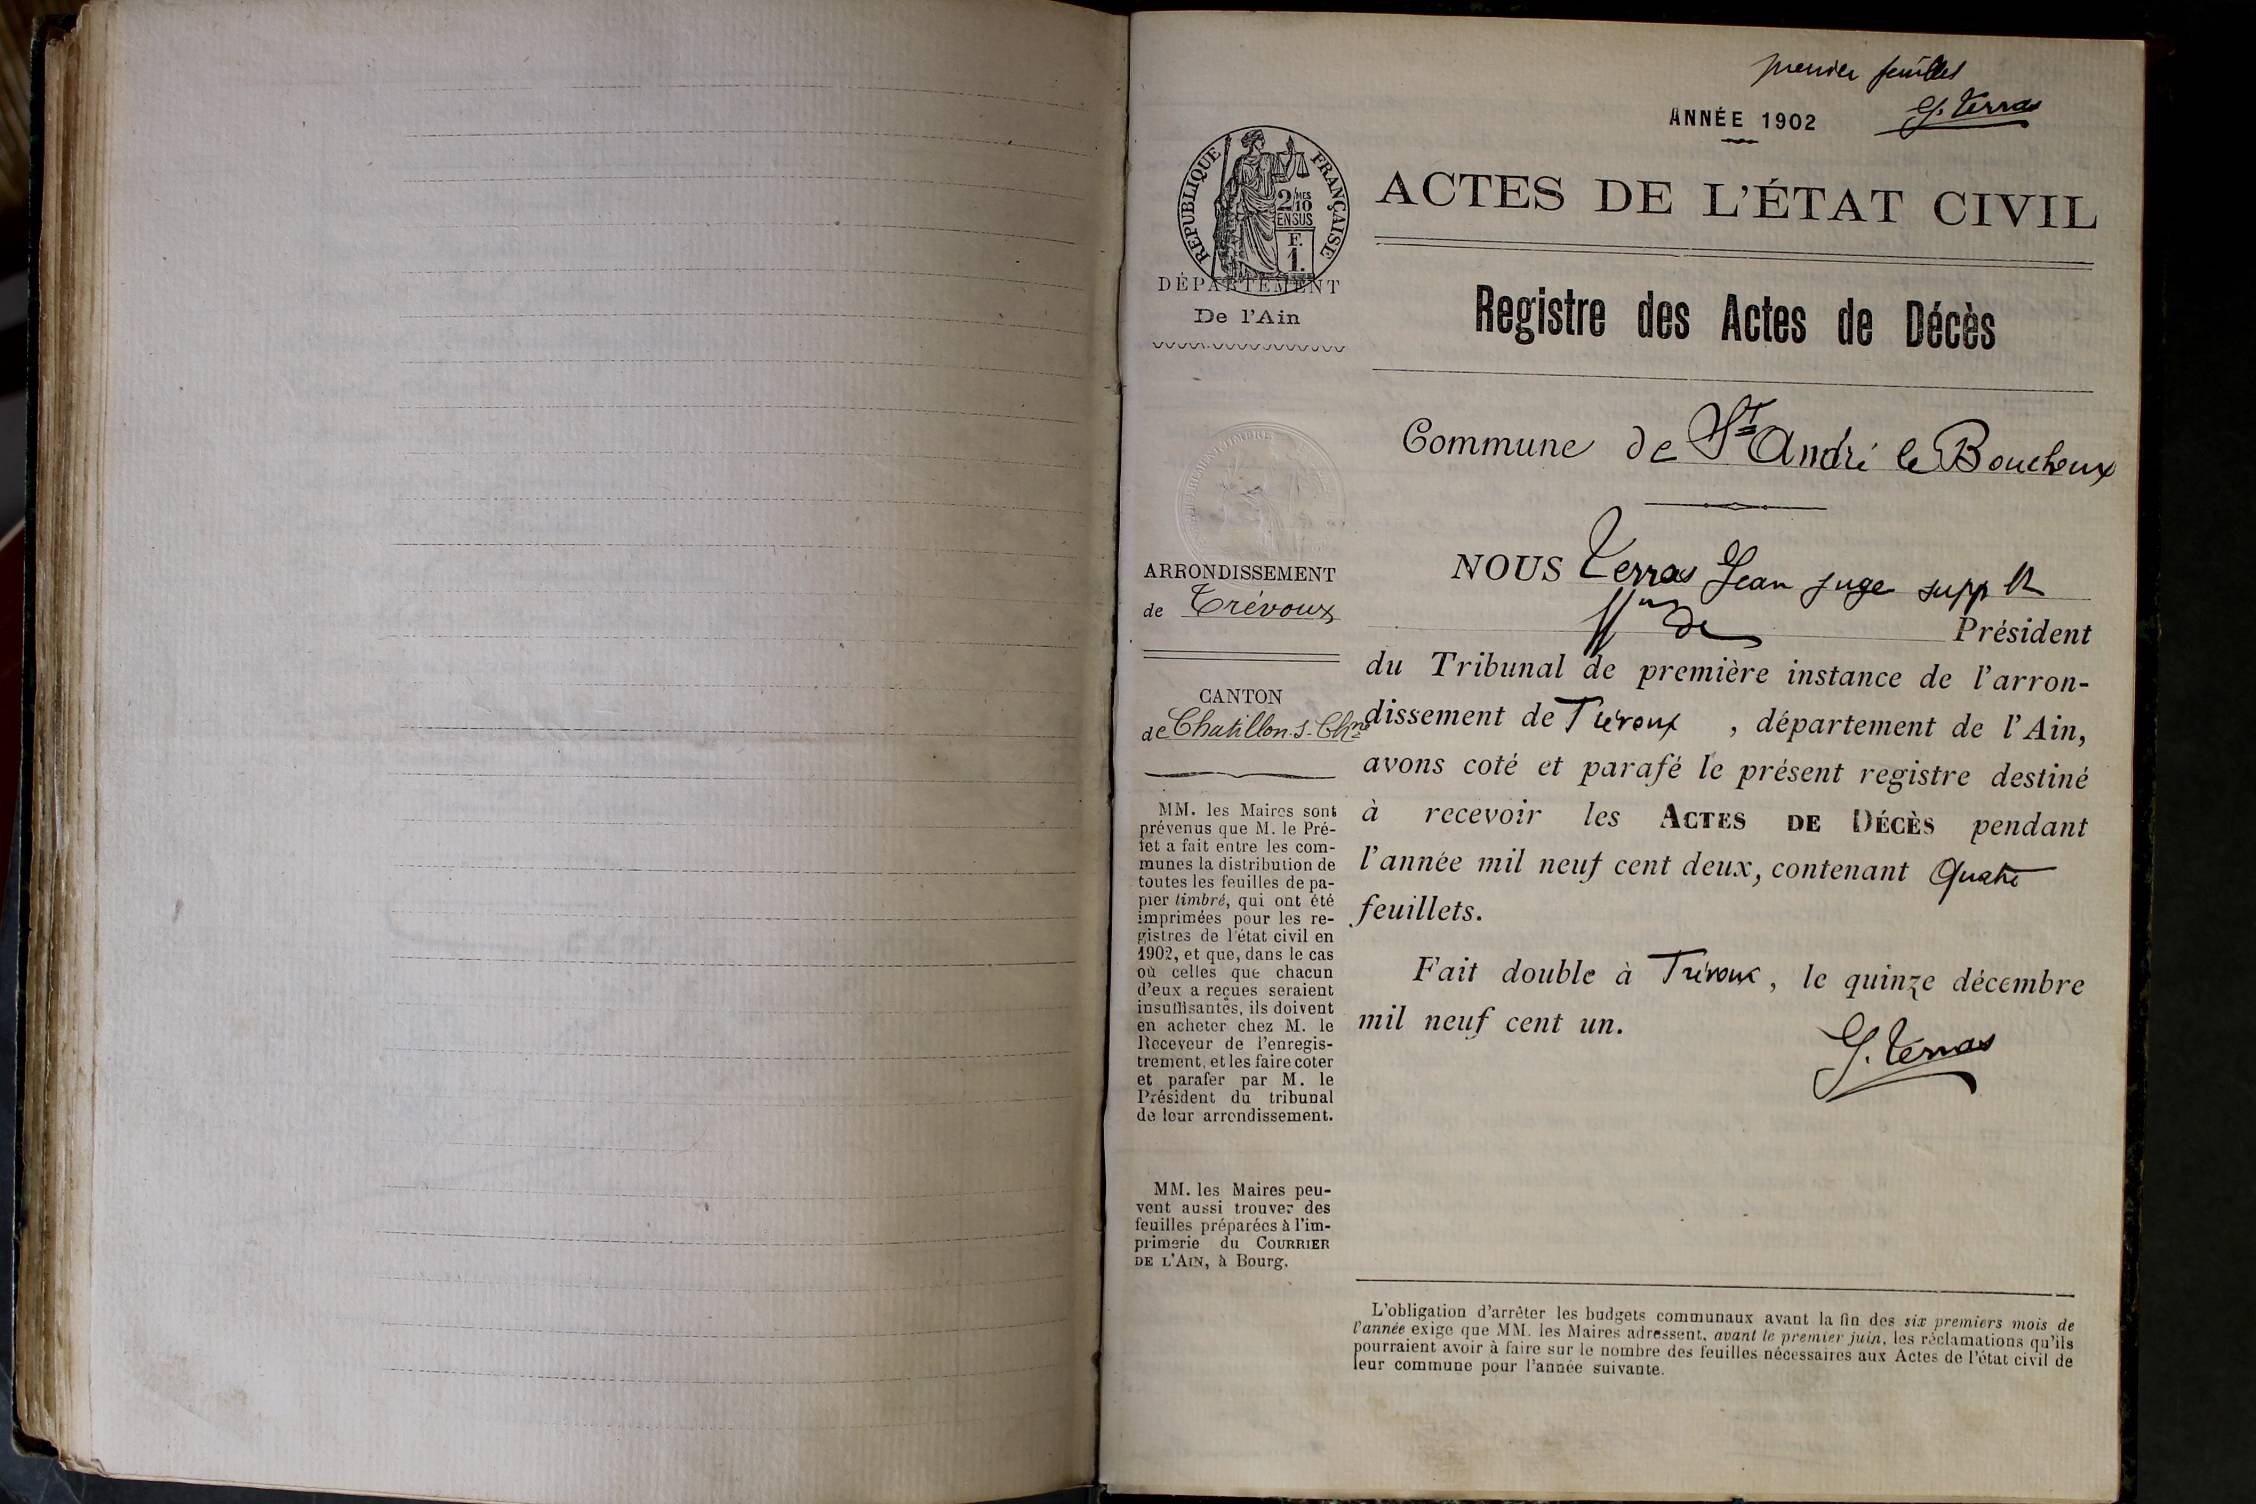 premier feuillet
G. Terras
ANNÉE 1902
RÉPUBLIQUE FRANÇAISE
2/10MES
EN SUS
F.
1.
ACTES DE L'ÉTAT CIVIL
DÉPARTEMENT
De l'Ain
Registre des Actes de Décès
Commune de St André le Bouchoux
ARRONDISSEMENT
de Trévoux
CANTON
de Chatillon-s-Chne
MM. les Maires sont
prévenus que M. le Pré-
fet a fait entre les com-
munes la distribution de
toutes les feuilles de pa-
pier timbré, qui ont été
imprimées pour les re-
gistres de l'état civil en
1902, et que, dans le cas
où celles que chacun
d'eux a reçues seraient
insuffisantes, ils doivent
en acheter chez M. le
Receveur de l'enregis-
trement, et les faire coter
et parafer par M. le
Président du tribunal
de leur arrondissement.
MM. les Maires peu-
vent aussi trouver des
feuilles préparées à l'im-
primerie du COURRIER
DE L'AIN, à Bourg.
NOUS Terras Jean juge suppt
Président
du Tribunal de première instance de l'arron-
dissement de Trévoux, département de l'Ain,
avons coté et parafé le présent registre destiné
à recevoir les ACTES DE DÉCÈS pendant
l'année mil neuf cent deux, contenant Quatre
feuillets.
Fait double à Trévoux, le quinze décembre
mil neuf cent un.
G. Terras
L'obligation d'arrêter les budgets communaux avant la fin des six premiers mois de
l'année exige que MM. les Maires adressent, avant le premier juin, les réclamations qu'ils
pourraient avoir à faire sur le nombre des feuilles nécessaires aux Actes de l'état civil de
leur commune pour l'année suivante.